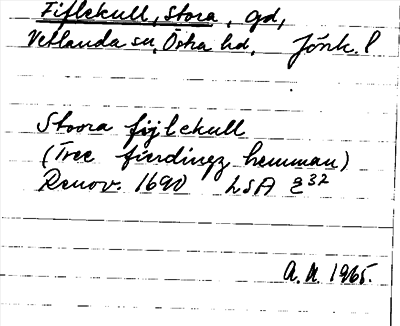 Fiflekull, Stora, gd,
Vetlanda sn, Östra hd, Jönk. l
Stoora fijlekull
(Tree fierdingz hemman)
Renov. 1690 LSA E 32
A. N. 1965.